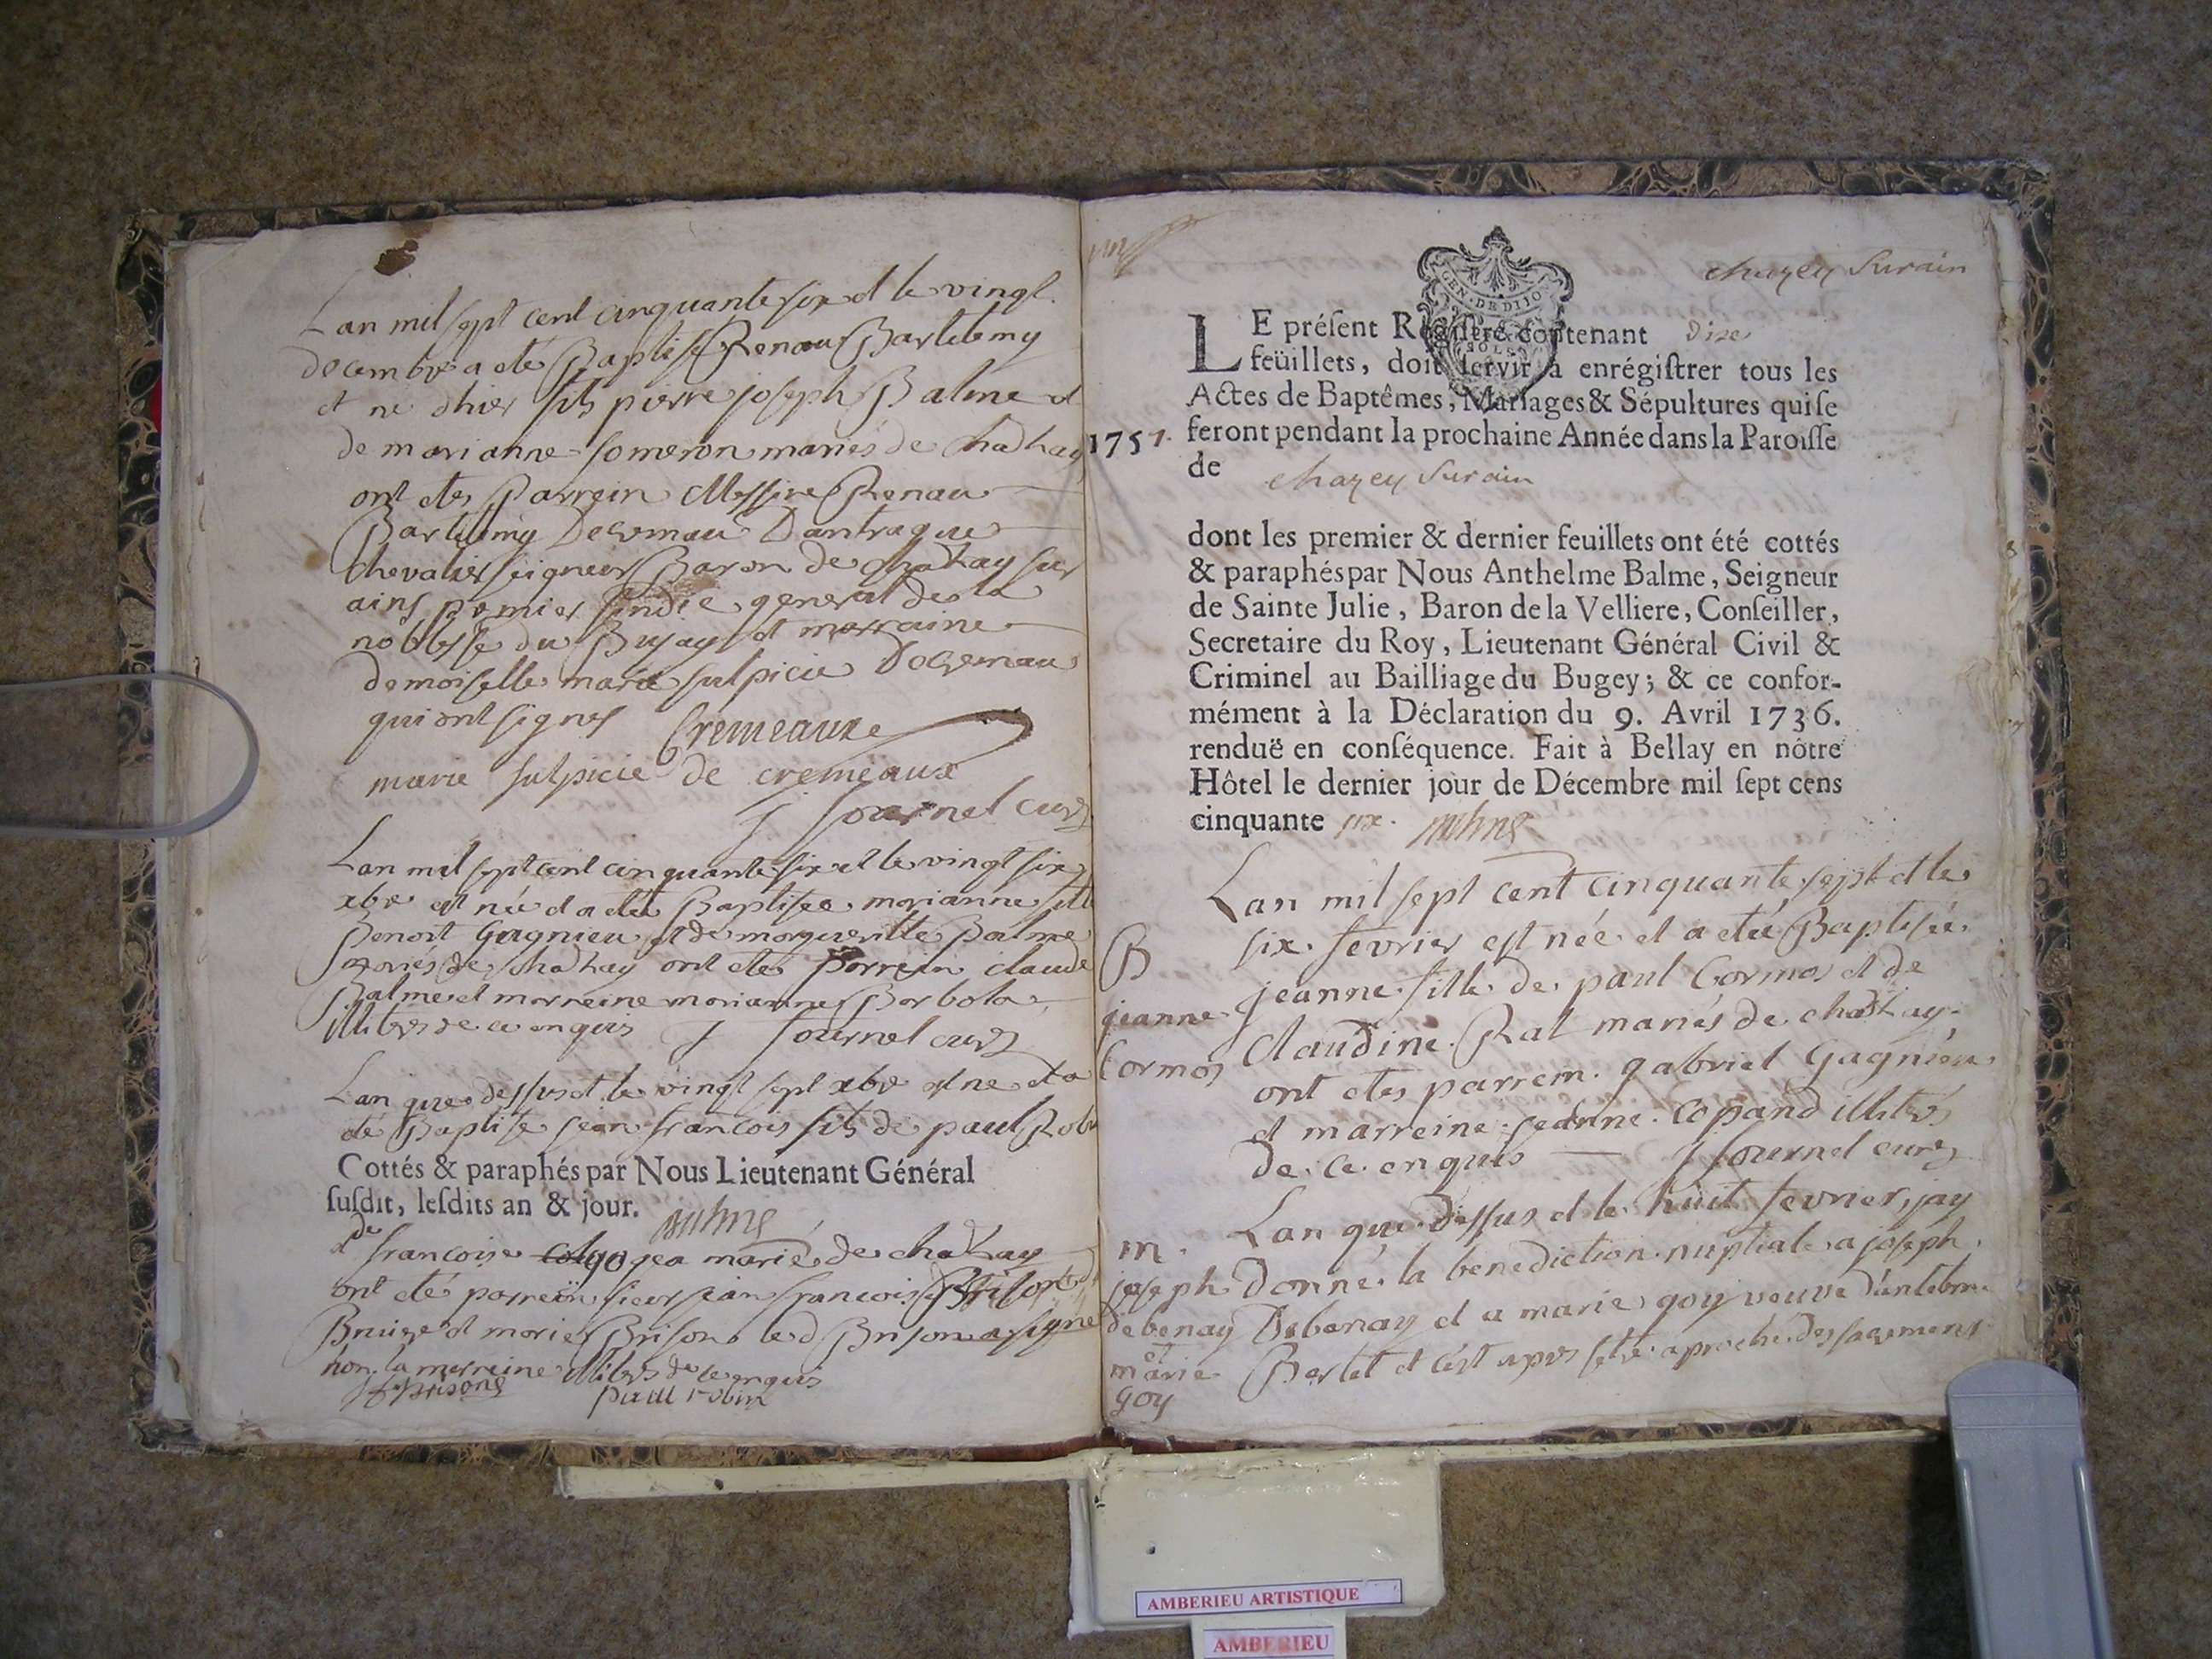 Lan mil sept cent cinquante six et le vingt
decembre a eté Baptisé Renau Bartelemy
et ne d'hier fils pierre joseph Balme et
de marianne someron mariés de chathay
ont etes Parrein Messire Renau
Bartelemy Decremau Dantrague
chevalier seigneur Baron de chathay sur
ains premier sindic general de la
noblesse du Bujay et marraine
demoiselle marie sulpicie Decremau
qui ont signes Cremeaux
marie sulpicie de cremeaux
J Sournel curé
Lan mil sept cent cinquante six et le vingt six
xbre est née et a eté Baptisee marianne fille
Benoit Gagnieu et de margueritte Balme
mariés de chathay ont etes parrein claude
Balme et marreine marianne Barbola
illiters de ce enquis J Sournel curé
Lan que dessus et le vingt sept xbre est ne et a
eté Baptisé jean francois fils de paul Robin
Cottés & paraphés par Nous Lieutenant Général
susdit, lesdits an & jour.
et de francoise gea marié de chathay
ont eté parrein sieur jean francois Brison
et marie Brison le d Brison a signé
non la marreine illiters de ce enquis
paul robin
chazey Surain
GEN. DE DIJO
LE présent Registre contenant dixe
feüillets, doit servir à enrégistrer tous les
Actes de Baptêmes, Mariages & Sépultures qui se
1757. feront pendant la prochaine Année dans la Paroisse
de chazey Surain
dont les premier & dernier feuillets ont été cottés
& paraphés par Nous Anthelme Balme, Seigneur
de Sainte Julie, Baron de la Velliere, Conseiller,
Secretaire du Roy, Lieutenant Général Civil &
Criminel au Bailliage du Bugey; & ce confor-
mément à la Déclaration du 9. Avril 1736.
renduë en conséquence. Fait à Bellay en nôtre
Hôtel le dernier jour de Décembre mil sept cens
cinquante six.
Lan mil sept cent cinquante sept et le
B six fevrier est née et a eté Baptisée
jeanne fille de paul Cormos et de
jeanne Claudine Rat mariés de chathay
Cormos ont etes parrein gabriel Gagniere
et marreine jeanne Copand illiters
de ce enquis — J Sournel curé
Lan que dessus et le huit fevrier jay
m. donné la benediction nuptiale a joseph
joseph debenay Debenay et a marie goy veuve d'antelme
et marie goy Berlet et c'est apres s'etre aproché des sacremens
AMBERIEU ARTISTIQUE
AMBERIEU